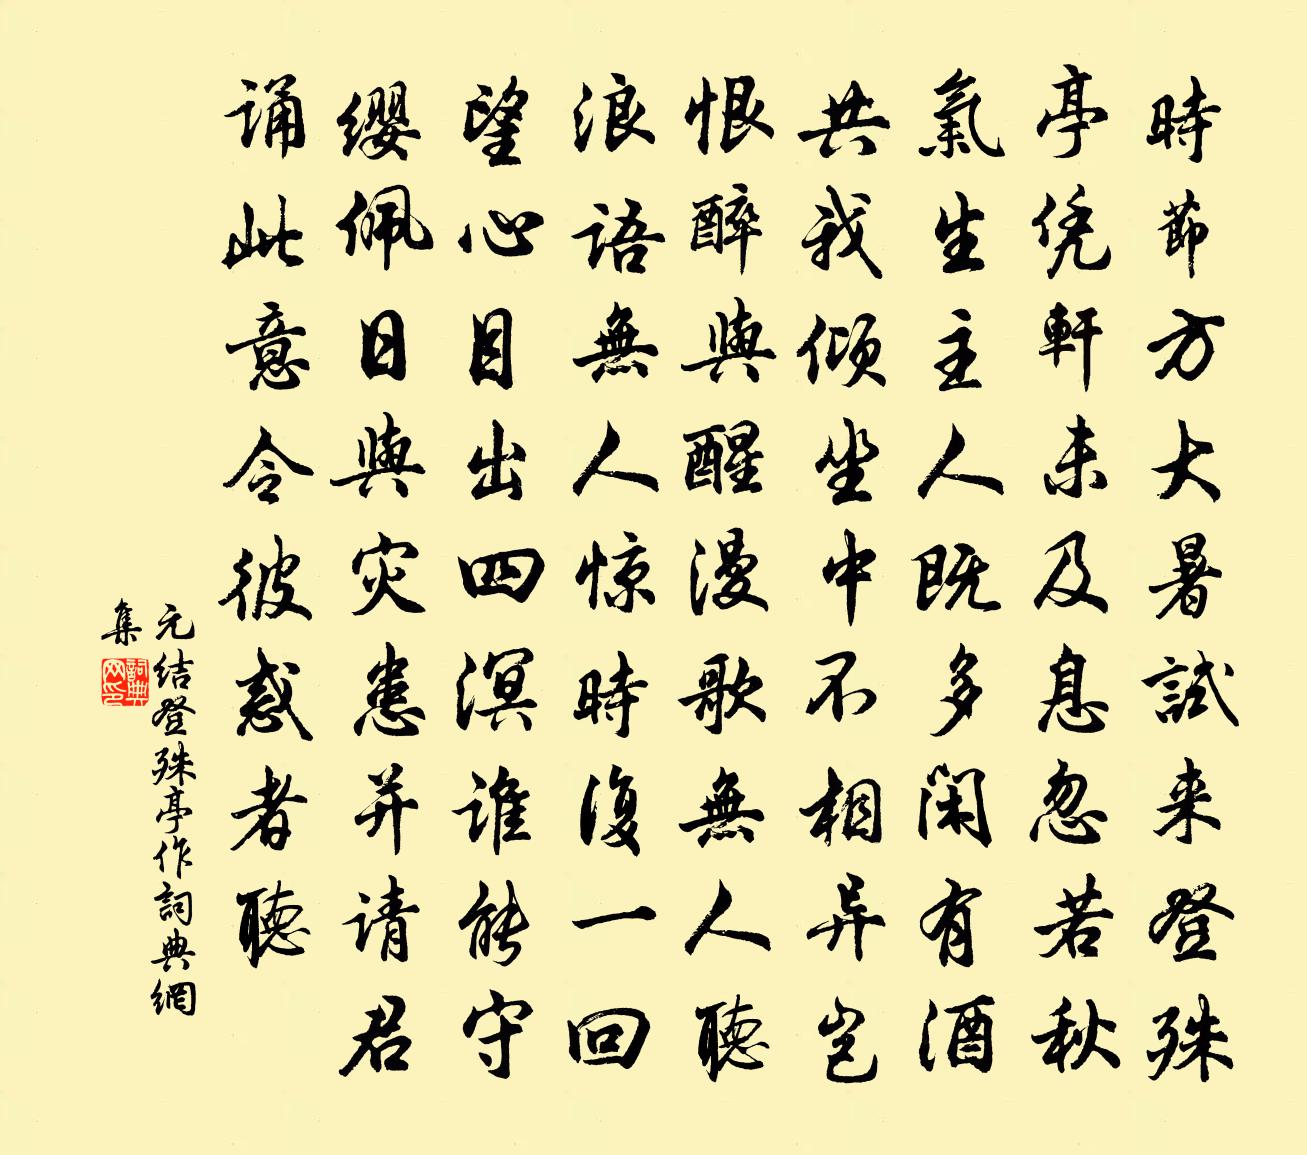 時節方大暑試来登殊
亭凭軒未及息忽若秋
氣生主人既多闲有酒
共我倾坐中不相异岂
恨醉與醒漫歌無人聴
浪語無人惊時復一回
望心目出四溟谁能守
缨佩日與灾患并请君
诵此意令彼惑者聴
元结登殊亭作詞典網
集
詞典网印